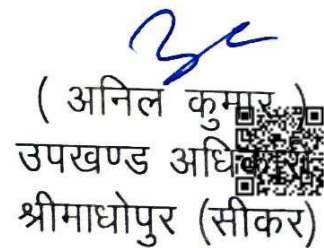 ( अनिल कुमार )
उपखण्ड
श्रीमाधोपुर (सीकर)